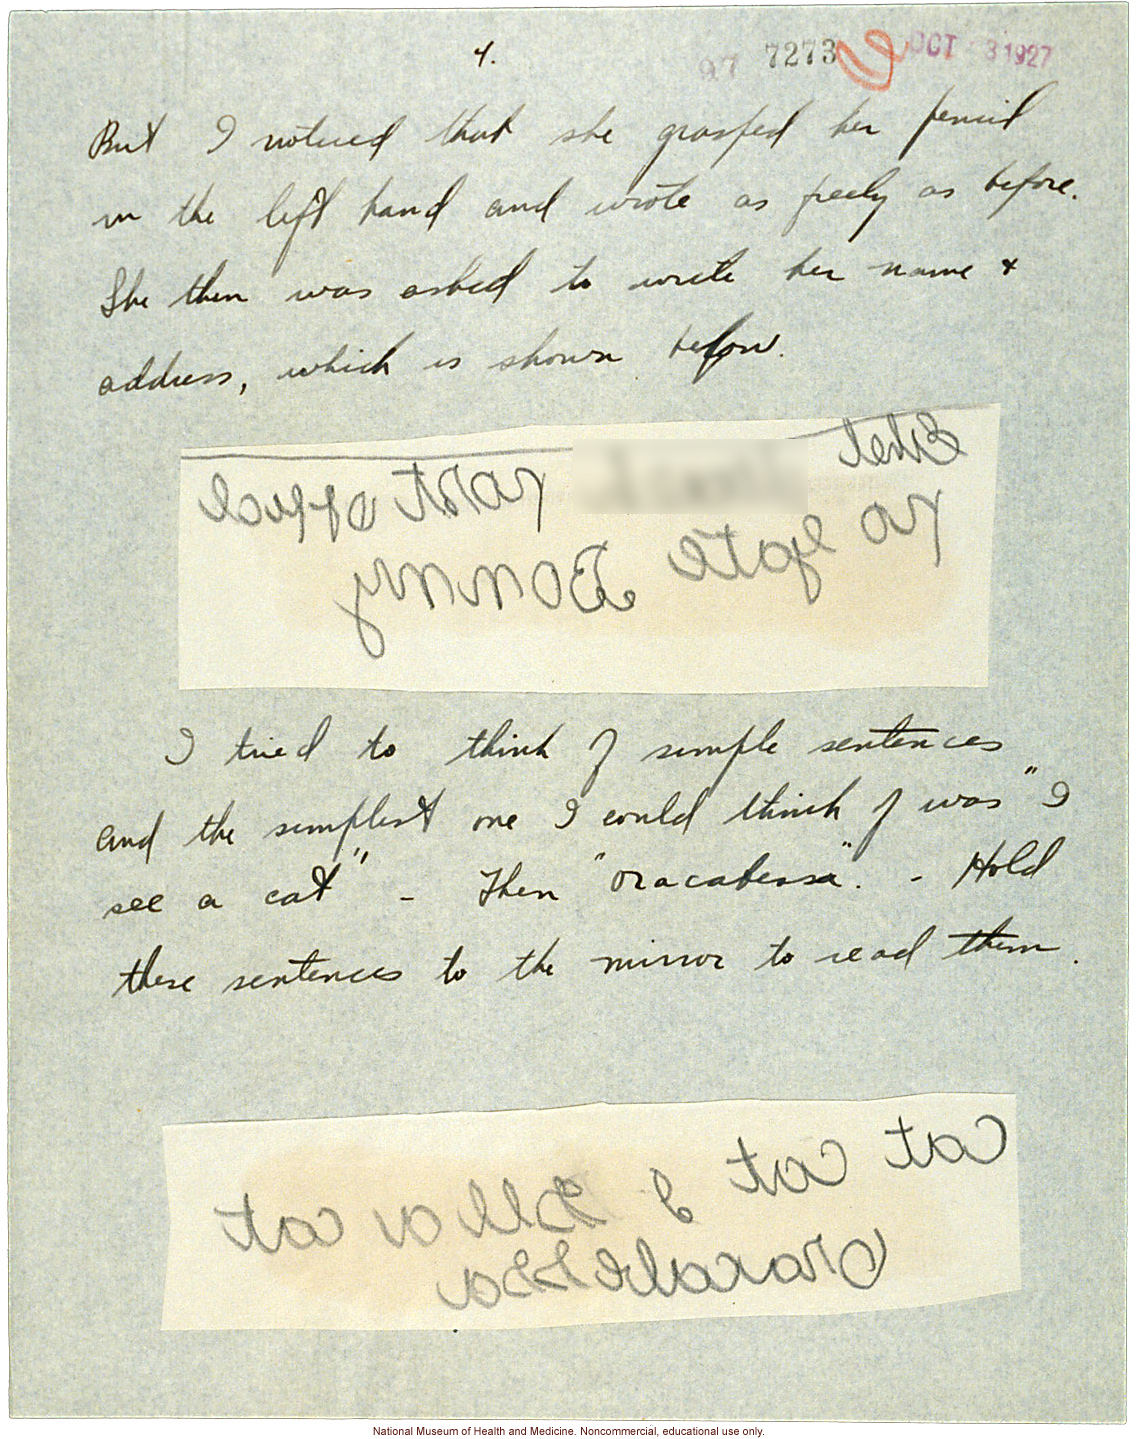 4.
97 7273 OCT 31 1927
But I noticed that she grasped her pencil
in the left hand and wrote as freely as before.
She then was asked to write her name &
address, which is shown below.
Ethel
Post office
Bonny
I tried to think of simple sentences
and the simplest one I could think of was "I
see a cat" - Then "Oracabessa". - Hold
these sentences to the mirror to read them.
cat cat I see a cat
Oracabessa
National Museum of Health and Medicine. Noncommercial, educational use only.